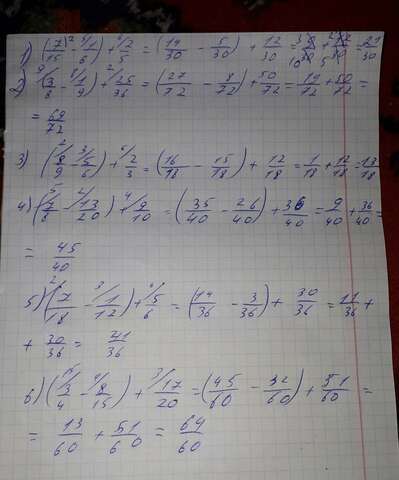 1) (7/15 - 1/6) + 2/5 = (14/30 - 5/30) + 12/30 = 9/30 + 12/30 = 21/30
2) (3/8 - 1/9) + 25/36 = (27/72 - 8/72) + 50/72 = 19/72 + 50/72 =
= 69/72
3) (8/9 - 5/6) + 2/3 = (16/18 - 15/18) + 12/18 = 1/18 + 12/18 = 13/18
4) (7/8 - 13/20) + 9/10 = (35/40 - 26/40) + 36/40 = 9/40 + 36/40 =
= 45/40
5) (7/18 - 1/12) + 5/6 = (14/36 - 3/36) + 30/36 = 11/36 +
+ 30/36 = 41/36
6) (3/4 - 8/15) + 17/20 = (45/60 - 32/60) + 51/60 =
= 13/60 + 51/60 = 64/60